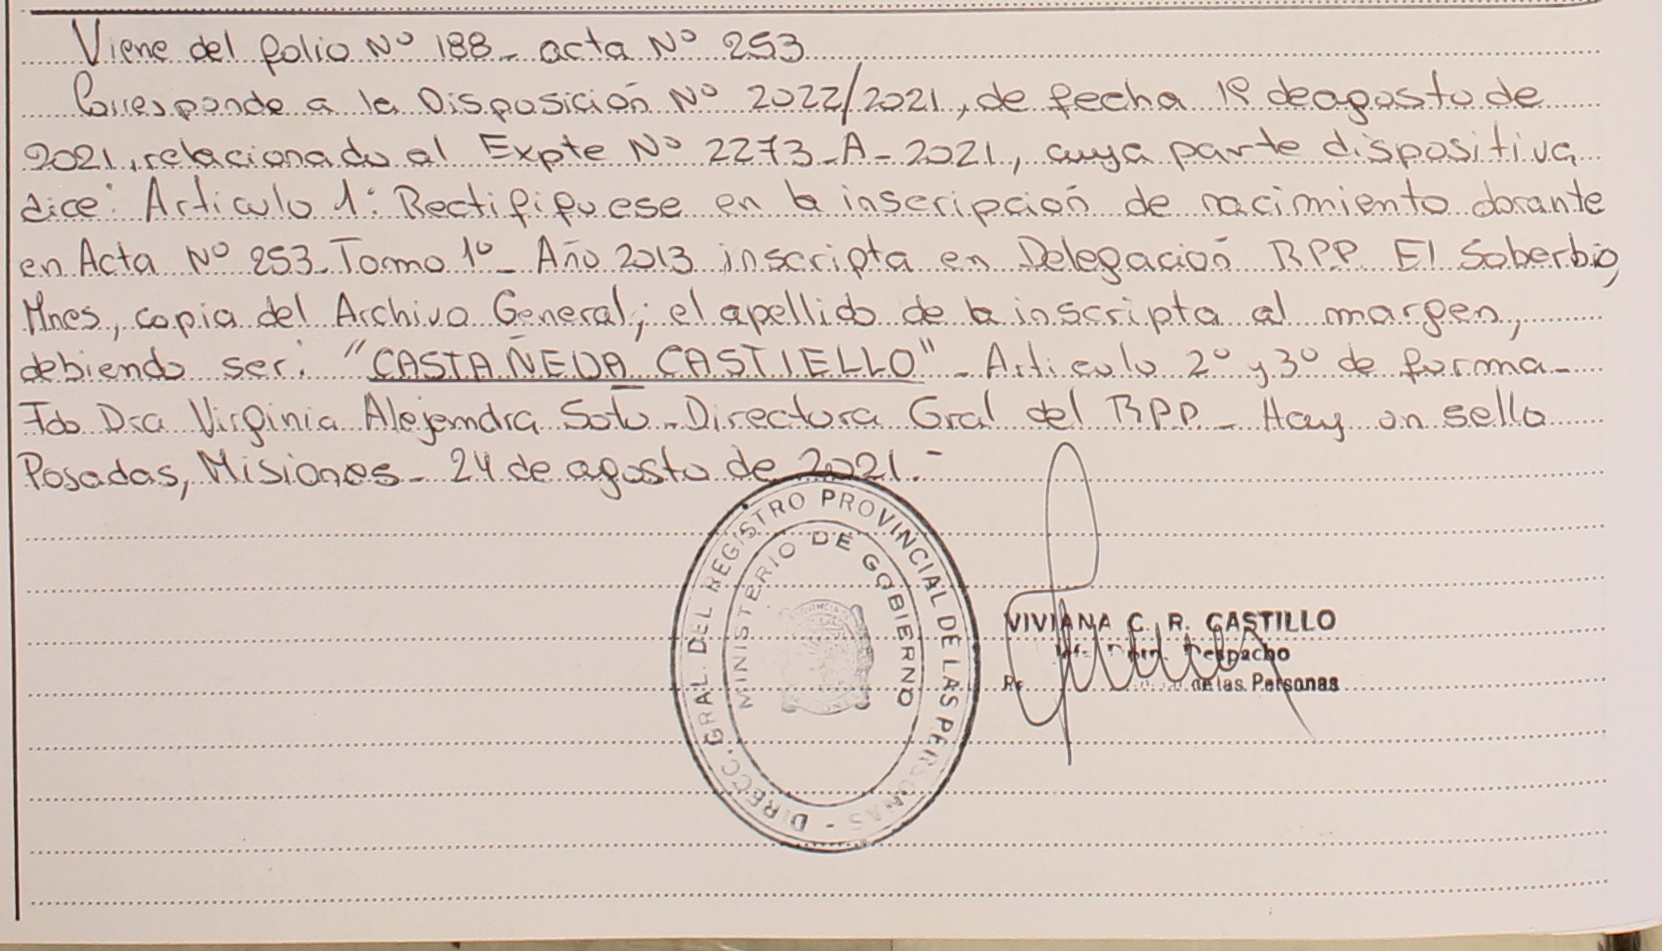 Viene del folio Nº 188_ acta Nº 253
Corresponde a la Disposición Nº 2022/2021, de fecha 1º de agosto de
2021, relacionado al Expte Nº 2273_A_2021, cuya parte dispositiva
dice: Articulo 1: Rectififuese en la inscripción de nacimiento dorante
en Acta Nº 253_Tomo 1º_ Año 2013 inscripta en Delegación RPP El Soberbio,
Mnes, copia del Archivo General; el apellido de la inscripta al margen,
debiendo ser: "CASTAÑEDA CASTIELLO"_ Articulo 2º y 3º de forma_
Fdo Dra Virginia Alejandra Soto_Directora Gral del RPP_ Hay un sello
Posadas, Misiones_ 24 de agosto de 2021.-
DIRECC. GRAL. DEL REGISTRO PROVINCIAL DE LAS PERSONAS -
MINISTERIO DE GOBIERNO
VIVIANA C. R. CASTILLO
Despacho
de las Personas